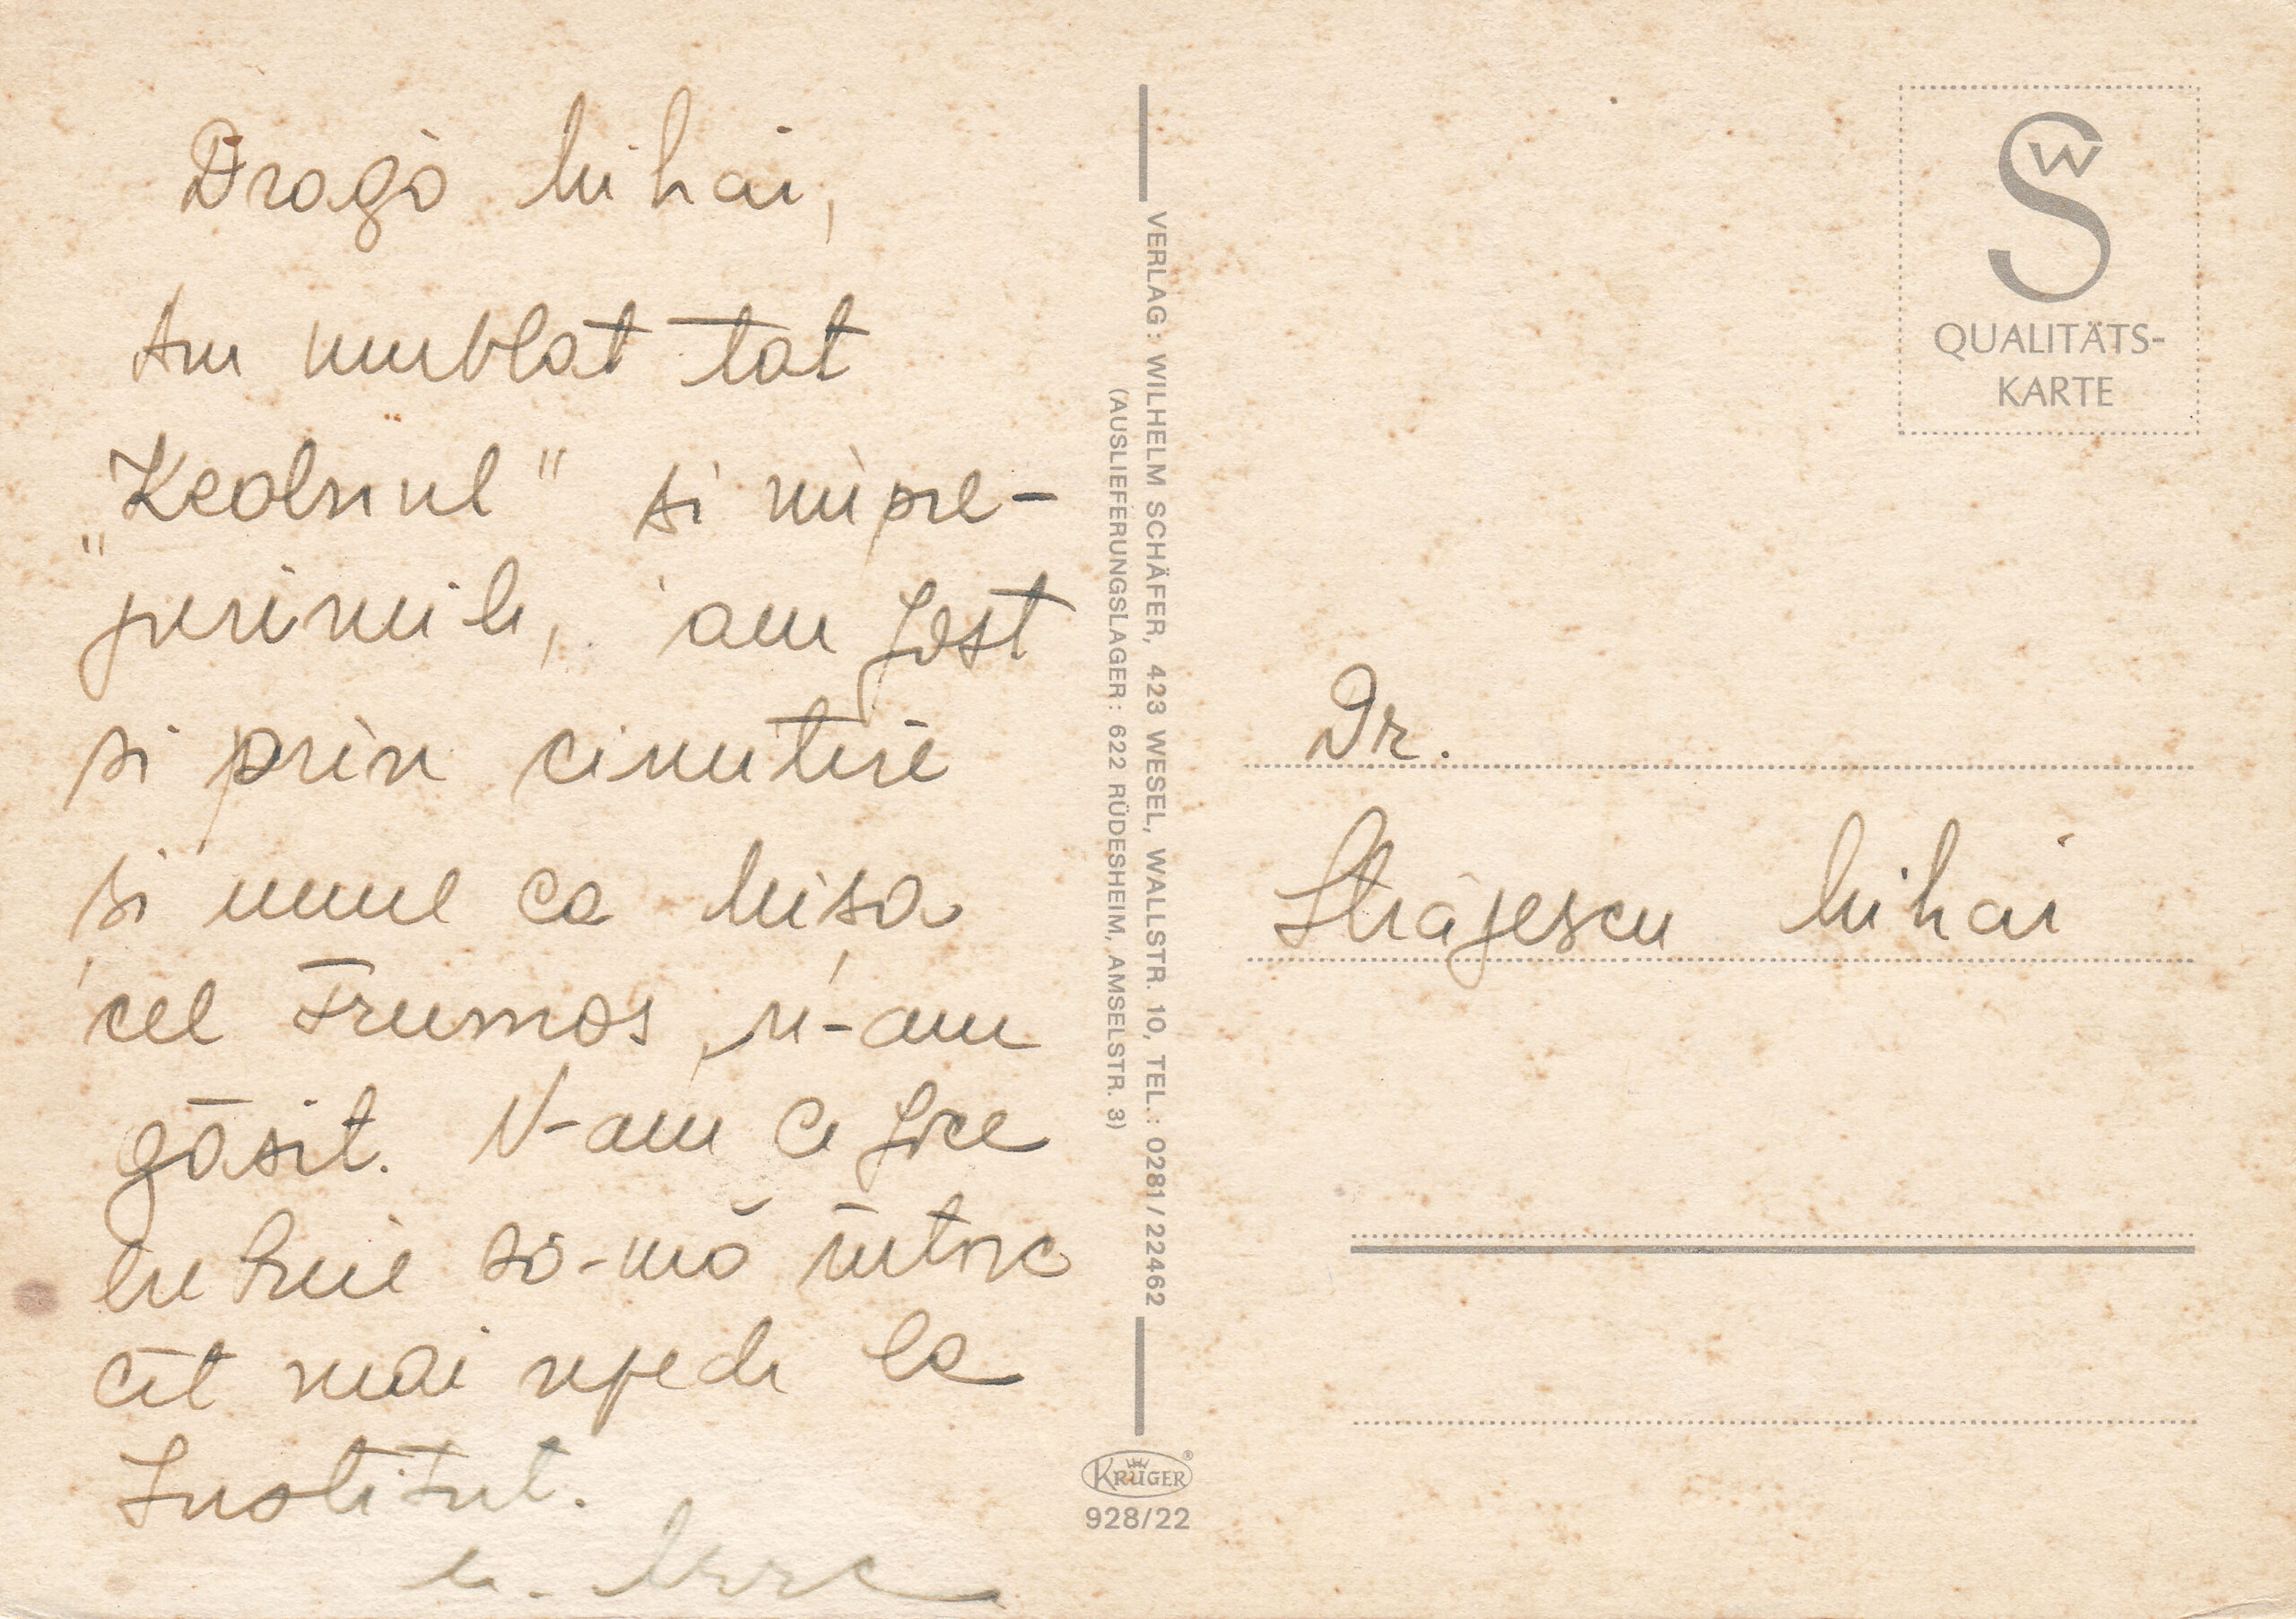 Dragă Mihai,
Am umblat tot
și împre-
jurimile, am fost
și prin cimitire
și unul ca Mișa
cel Frumos n-am
găsit. N-am ce face
trebuie să-mă întorc
cît mai repede la
Institut.
VERLAG: WILHELM SCHÄFER, 423 WESEL, WALLSTR. 10, TEL.: 0281/22462
(AUSLIEFERUNGSLAGER: 622 RÜDESHEIM, AMSELSTR. 3)
KRÜGER®
928/22
SW
QUALITÄTS-
KARTE
Dr.
Străjescu Mihai